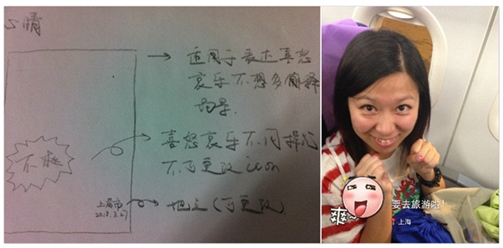 心情
适用于表述喜怒
哀乐不想多解释
场景
喜怒哀乐不同
不可更改icon
上海市
地点(可更改)
要去旅游啦!
上海
爽~